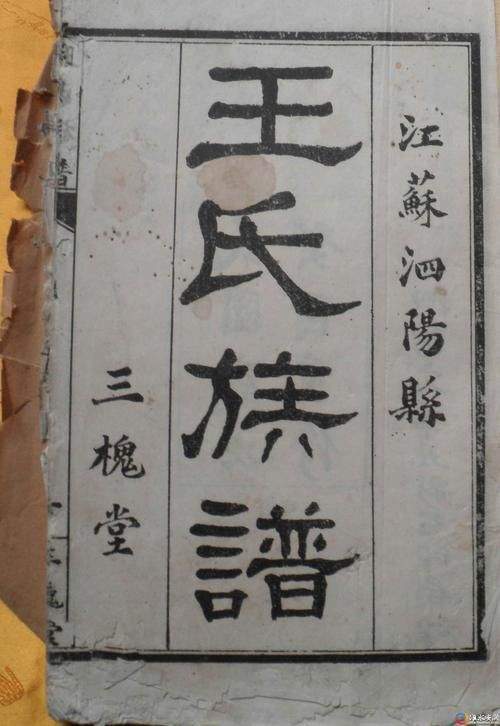 江蘇泗陽縣
王氏族譜
三槐堂
三槐堂